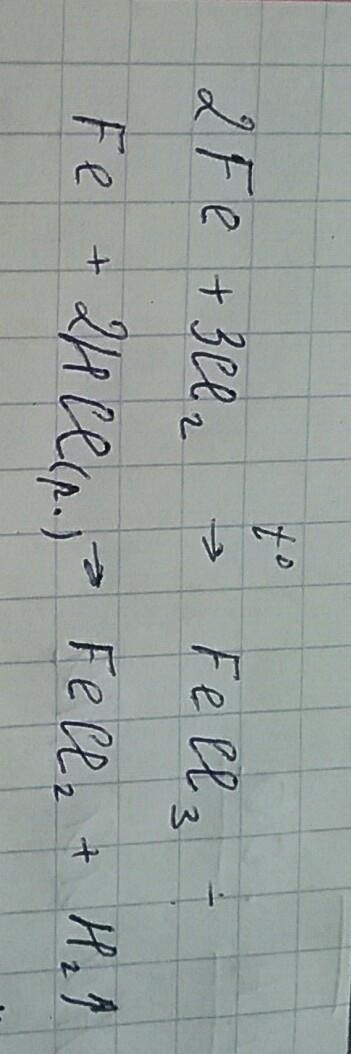 t°
2Fe + 3Cl₂ → FeCl₃ -
Fe + 2HCl(р.) → FeCl₂ + H₂↑